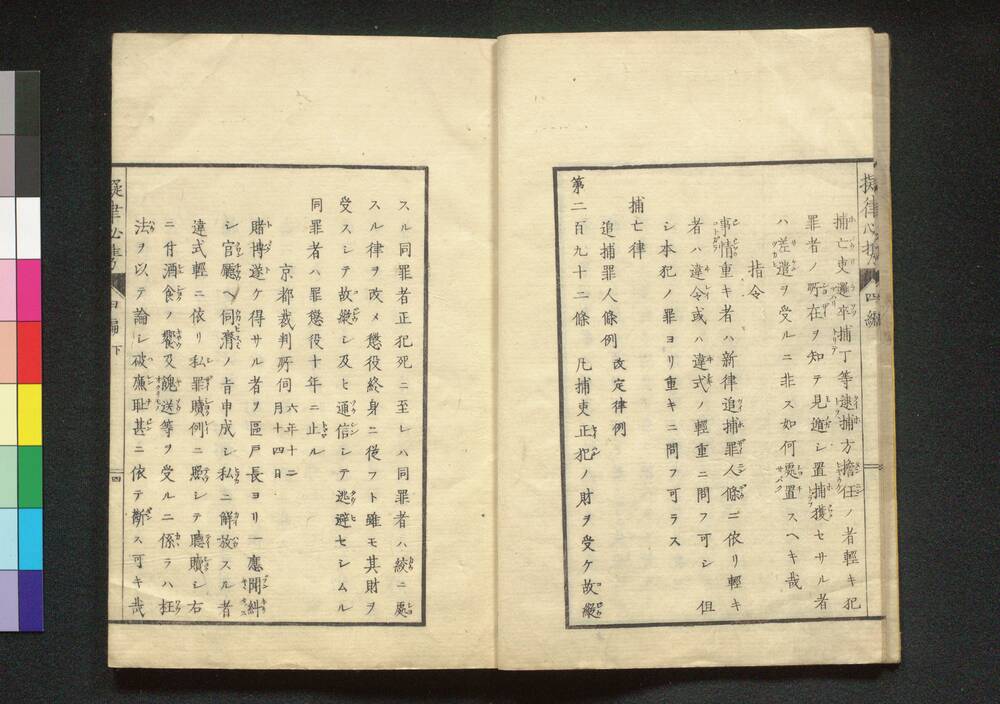 擬律必携 四編
捕亡吏邏卒捕丁等逮捕方擔任ノ者輕キ犯
罪者ノ所在ヲ知テ見遁シ置捕獲セサル者
ハ差遣ヲ受ルニ非ス如何處置スヘキ哉
指令
事情重キ者ハ新律追捕罪人條ニ依リ輕キ
者ハ違令或ハ違式ノ輕重ニ問フ可シ 但
シ本犯ノ罪ヨリ重キニ問フ可ラス
捕亡律
追捕罪人條例 改定律例
第二百九十二條 凡捕吏正犯ノ財ヲ受ケ故縱
スル同罪者正犯死ニ至レハ同罪者ハ絞ニ處
スル律ヲ改メ懲役終身ニ從フト雖モ其財ヲ
受スシテ故縱シ及ヒ通信シテ逃避セシムル
同罪者ハ罪懲役十年ニ止ル
京都裁判所伺 六年十二月十四日
賭博遂ケ得サル者ヲ區戸長ヨリ一應聞糾
シ官廳ヘ伺濟ノ旨申成シ私ニ解放スル者
違式輕ニ依リ私罪贖例ニ照シテ聽贖シ右
ニ付酒食ノ饗及餽送等ヲ受ルニ係ラハ枉
法ヲ以テ論シ破廉耻甚ニ依テ斷ス可キ哉
擬律必携 四編下 四